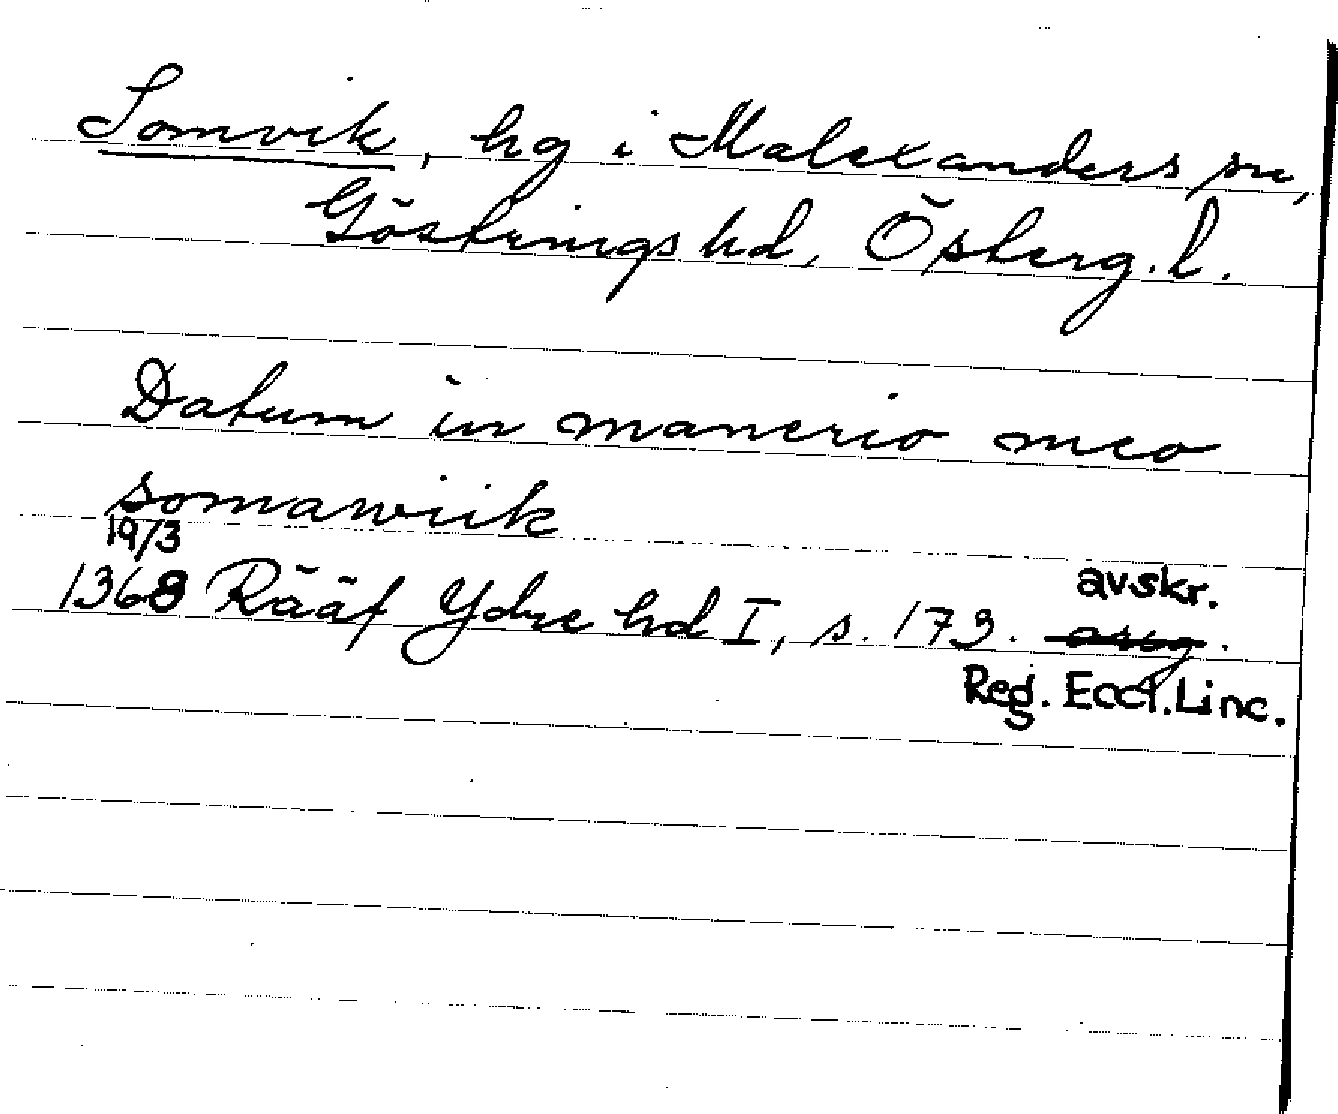 Somvik, hg i Malexanders sn,
Göstrings hd, Österg. l.
Datum in manerio meo
somawiik
19/3
1368 Rääf Ydre hd I, s. 173. avskr.
orig.
Reg. Eccl. Linc.